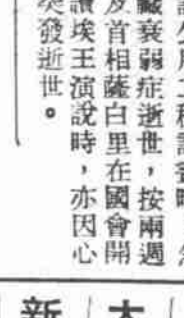 臟衰弱症逝世，按兩週
及首相薩白里在國會開
讀埃王演說時，亦因心
突發逝世。
新